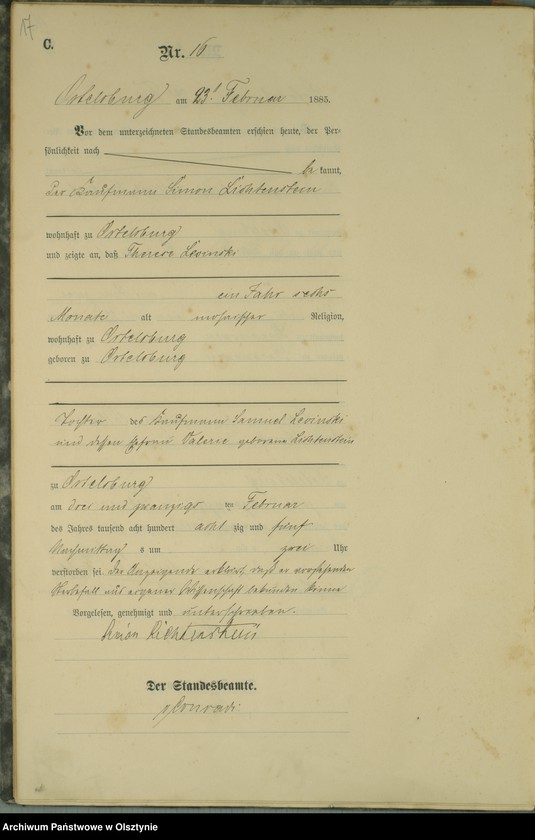 17
C.
Nr. 16
Ortelsburg am 23t Februar 1885.
Vor dem unterzeichneten Standesbeamten erschien heute, der Per-
sönlichkeit nach
be kannt,
der Kaufmann Simon Lichtenstein
wohnhaft zu Ortelsburg
und zeigte an, daß Therese Levinski
ein Jahr sechs
Monate alt mosaischer Religion,
wohnhaft zu Ortelsburg
geboren zu Ortelsburg
Tochter des Kaufmann Samuel Levinski
und dessen Ehefrau Valerie geborene Lichtenstein
zu Ortelsburg
am drei und zwanzigs ten Februar
des Jahres tausend acht hundert acht zig und fünf
Nachmittag s um zwei Uhr
verstorben sei. Der Anzeigende erklärt, daß er vorstehenden
Sterbefall aus eigener Wissenschaft bekunden könne
Vorgelesen, genehmigt und unterschrieben.
Simon Lichtenstein
Der Standesbeamte.
Conradi
Archiwum Państwowe w Olsztynie